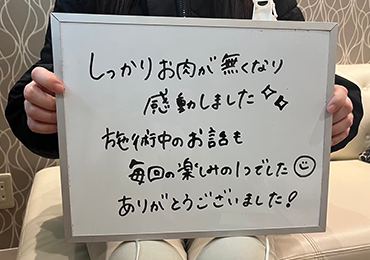 しっかりお肉が無くなり
感動しました✨
施術中のお話も
毎回の楽しみの1つでした☺
ありがとうございました!